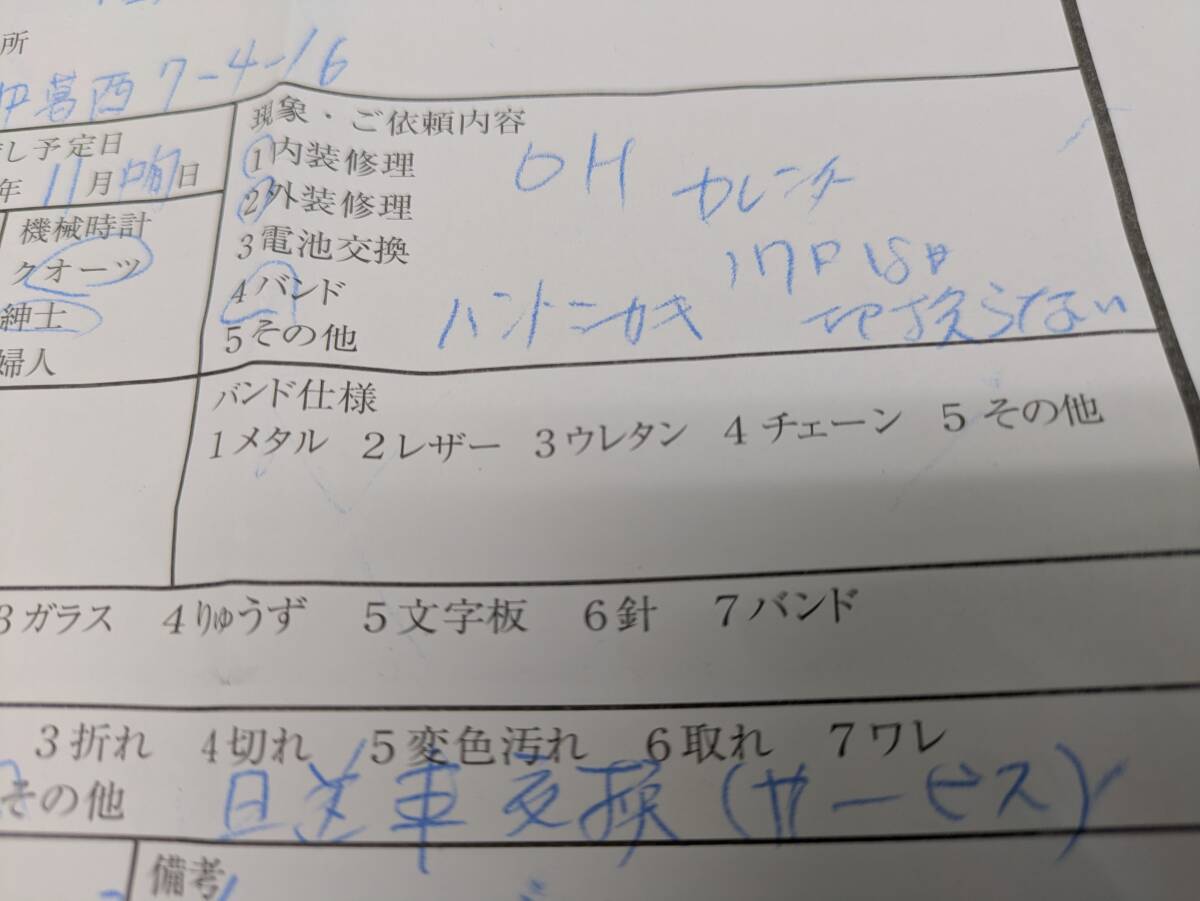 所
葛西 7-4-16
し予定日
年 11月中旬日
現象・ご依頼内容
1内装修理
2外装修理
3電池交換
4バンド
5その他
OH カレンダー
17日 18日
切換らない
バンドミガキ
機械時計
クオーツ
紳士
婦人
バンド仕様
1メタル 2レザー 3ウレタン 4チェーン 5その他
3ガラス 4りゅうず 5文字板 6針 7バンド
3折れ 4切れ 5変色汚れ 6取れ 7ワレ
その他 日送車交換(サービス)
備考